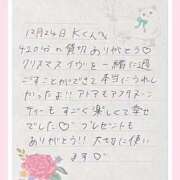 12月24日 Kくんへ
420分の貸切ありがとう♡
クリスマスイヴを一緒に過
ごすことができて本当にうれし
かったよ!!アトマもアフタヌーン
ティーもすごく楽しくて幸せ
でした♡プレゼントも
ありがとう!!大切に使い
ます♡